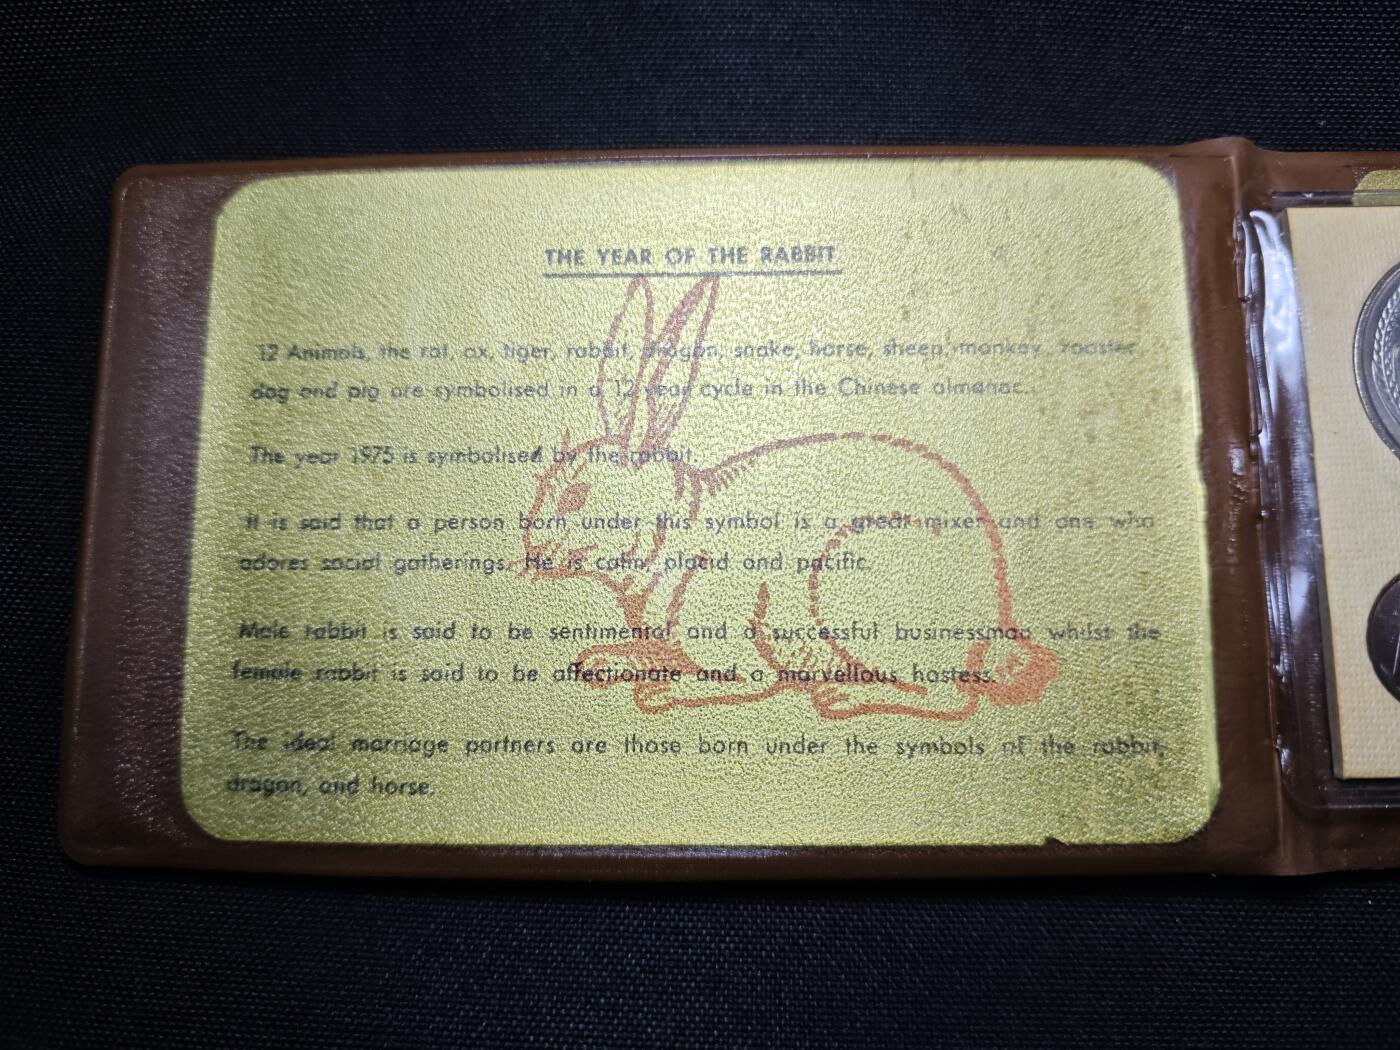 THE YEAR OF THE RABBIT
12 Animals, the rat, ox, tiger, rabbit, dragon, snake, horse, sheep, monkey, rooster,
dog and pig are symbolised in a 12 year cycle in the Chinese almanac.
The year 1975 is symbolised by the rabbit.
It is said that a person born under this symbol is a great mixer and one who
adores social gatherings. He is calm, placid and pacific.
Male rabbit is said to be sentimental and a successful businessman whilst the
female rabbit is said to be affectionate and a marvellous hostess.
The ideal marriage partners are those born under the symbols of the rabbit,
dragon, and horse.